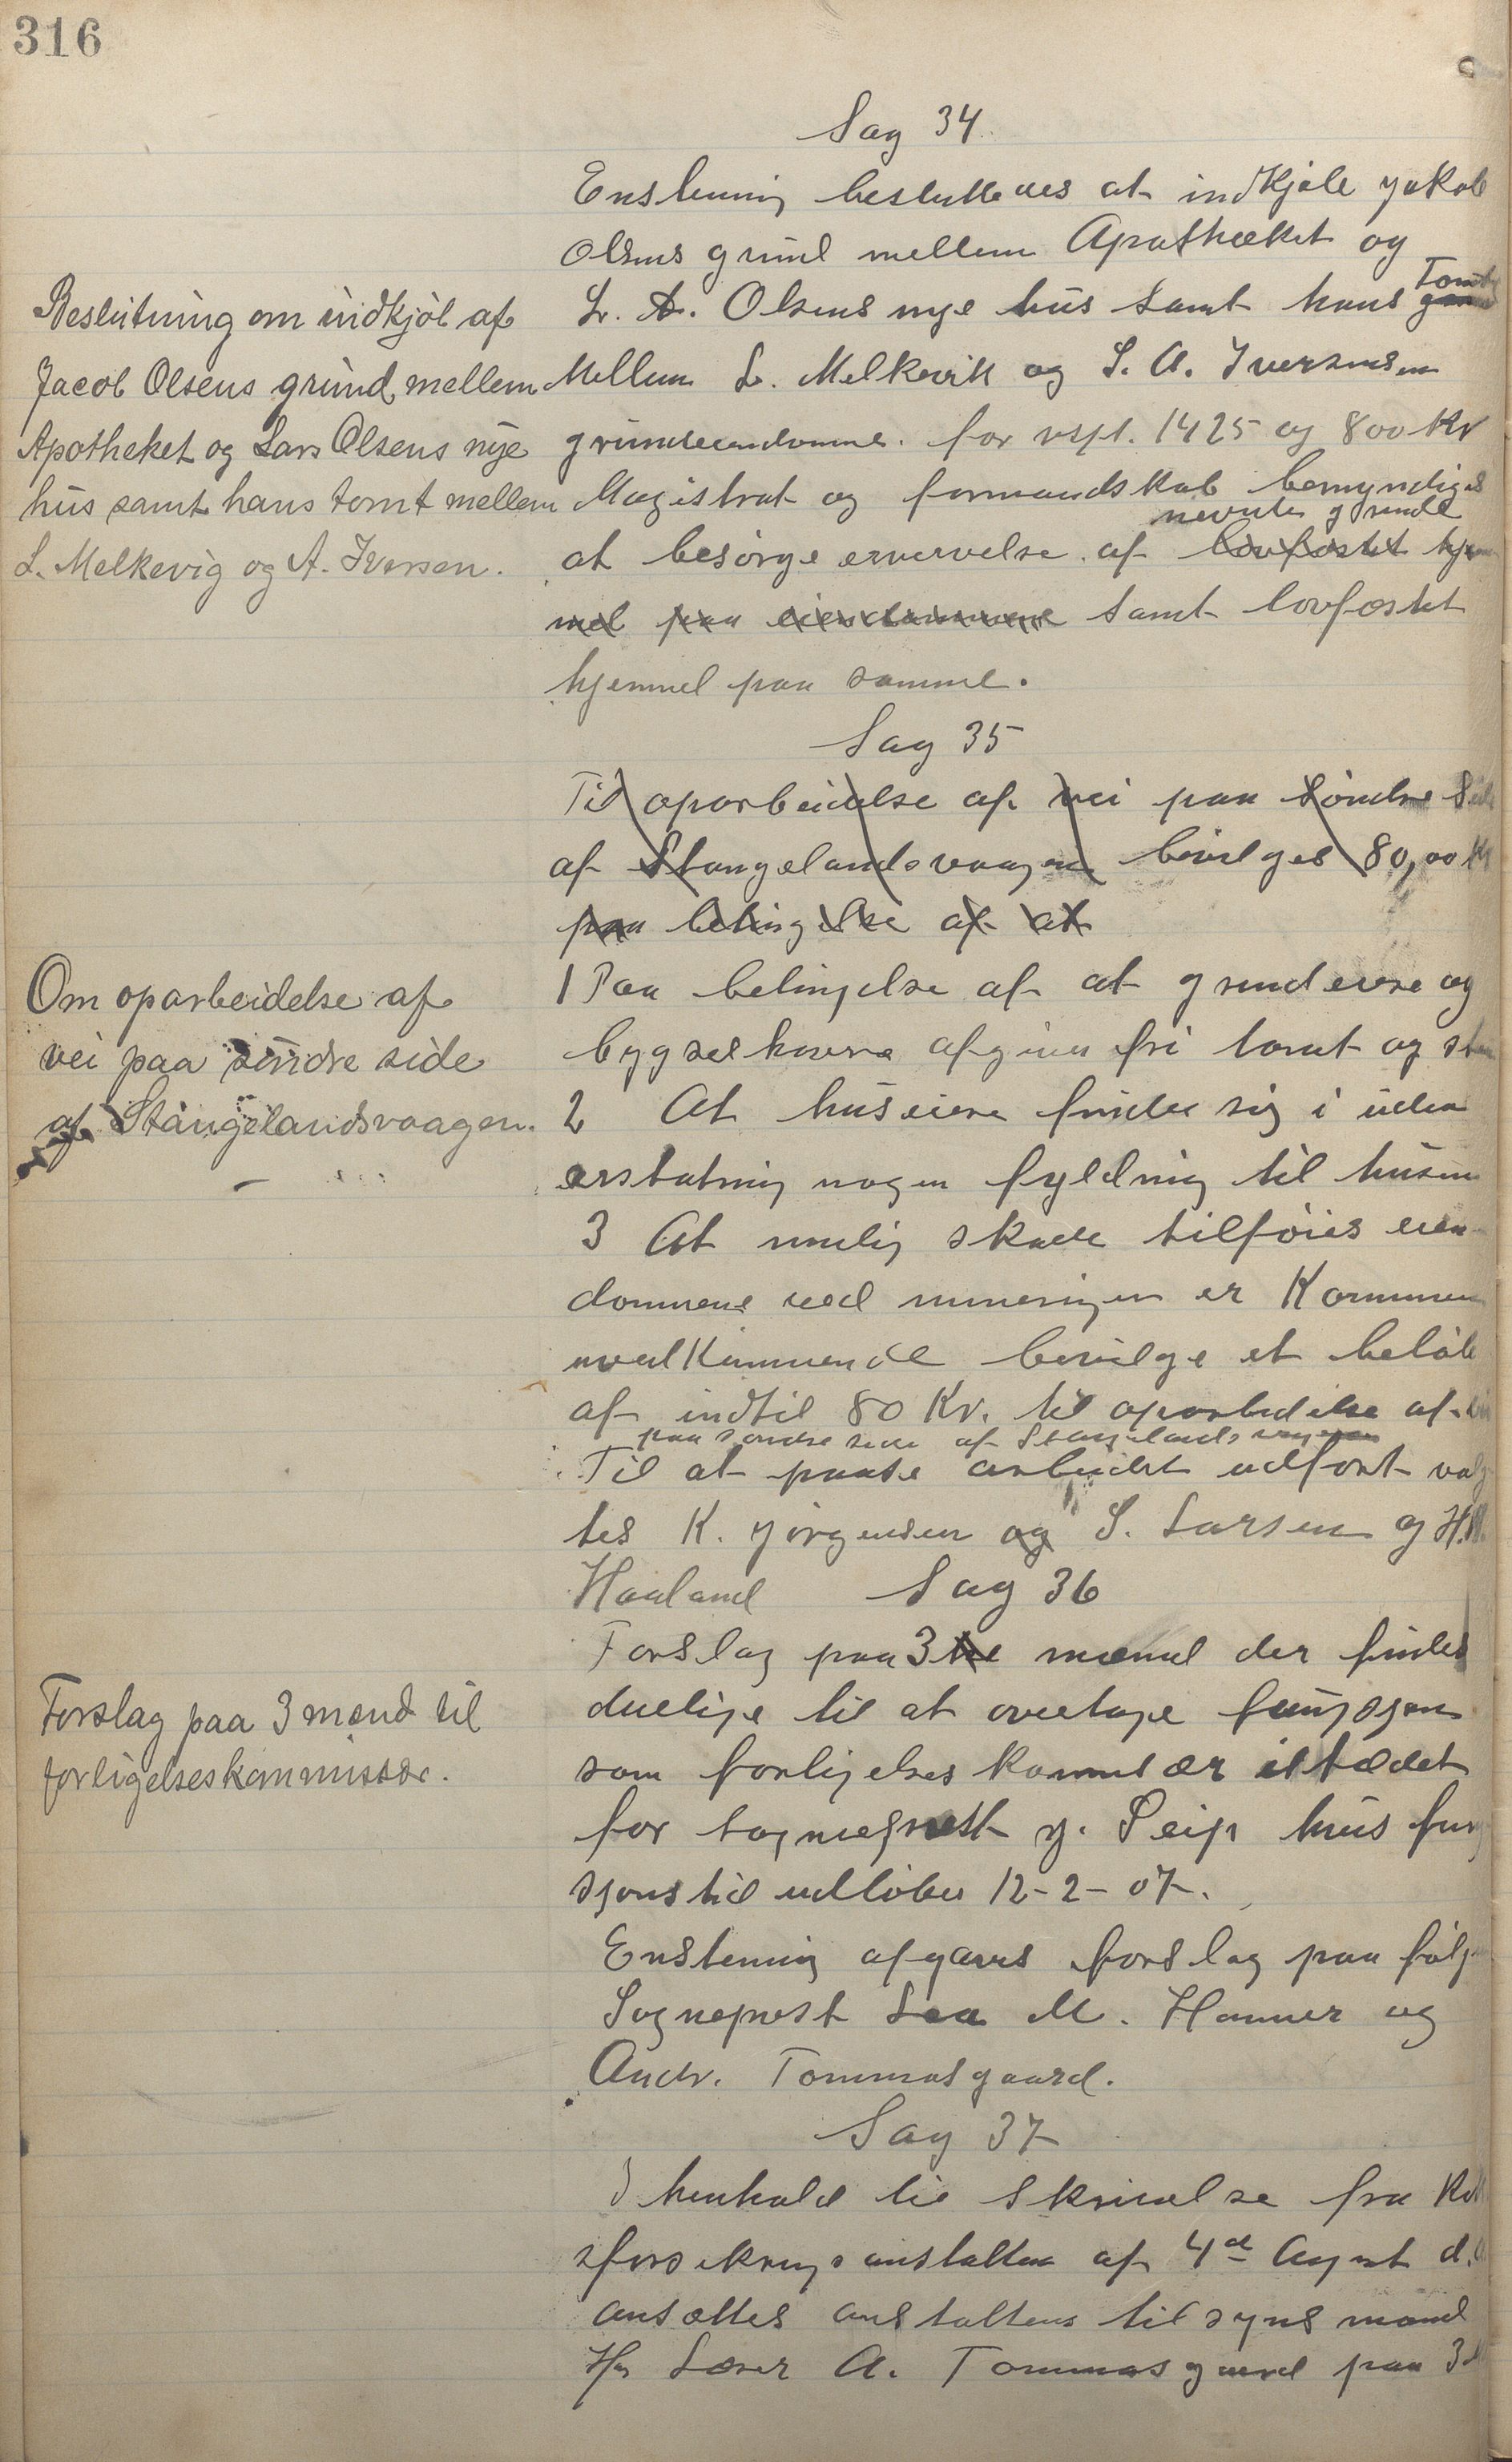 316
Sag 34
Enstemmig besluttedes at indkjøbe Jakob
Olsens grund mellem Apothæket og
Tomt
L. A. Olsens nye hus samt hans
Beslutning om indkjøb af
Jacob Olsens grund mellem
Apotheket og Lars Olsens nye
hus samt hans tomt mellem
L. Melkevig og A. Iversen.
Mellem L. Melkevik og S. A. Iversens
grundeiendomme. for resp. 1425 og 800 Kr
Magistrat og formandskab bemyndiges
nevnte grunde
at besørge ervervelse af lovfæstet hjem
mel paa eiendommene samt lovfæstet
hjemmel paa samme.
Sag 35
Til oparbeidelse af vei paa søndre Side
af Stangelandsvaagen bevilges 80,00 Kr
paa betingelse af at
Om oparbeidelse af
vei paa søndre side
af Stangelandsvaagen.
1 Paa betingelse af at grundeiere og
bygselhavere afgiver fri tomt og
2 At huseiere finder sig i uden
erstatning nogen fyldning til husene
3 At mulig skade tilføies eien
dommene ved mineringen er Kommunen
uvedkommende bevilge et beløb
af indtil 80 Kr. til oparbeidelse af vei
paa søndre side af Stangelandsvaagen
Til at paase arbeidet udført valg
tes K. Jørgensen og S. Larsen og H.
Haaland Sag 36
Forslag paa 3 mænd til
forligelseskommissær.
Forslag paa 3 tre mænd der findes
duelige til at overtage fungsjon
som forligelseskommisær istædet
for sogneprest J. Seip hvis fung
sjonstid udløber 12-2-07.
Enstemmig afgaves forslag paa følg
Sogneprest Lea M. Hamner og
Andr. Tommasgaard.
Sag 37
I henhold til Skrivelse fra
sforsikringsanstalten af 4de August d.
ansættes anstaltens tilsynsmand
Hr Lærer A. Tommasgaard paa 3